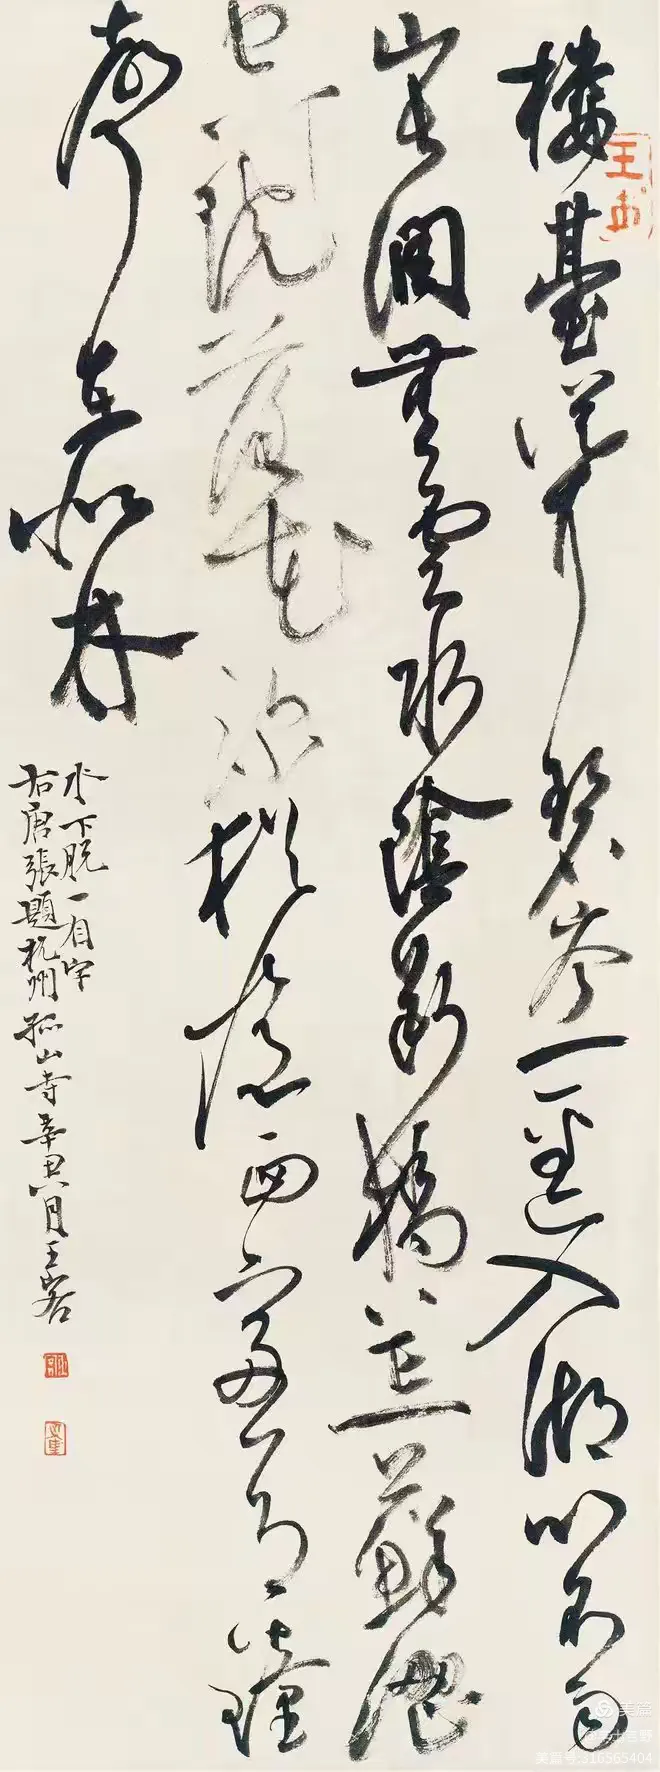 樓臺聳碧岑一逕入湖心不雨
山長潤無雲水陰斷橋荒蘚澀
空院落花深猶憶西窗月鐘
聲在北林
水下脱一自字
右唐張題杭州孤山寺辛丑八月王客
美篇
美篇号:316565404